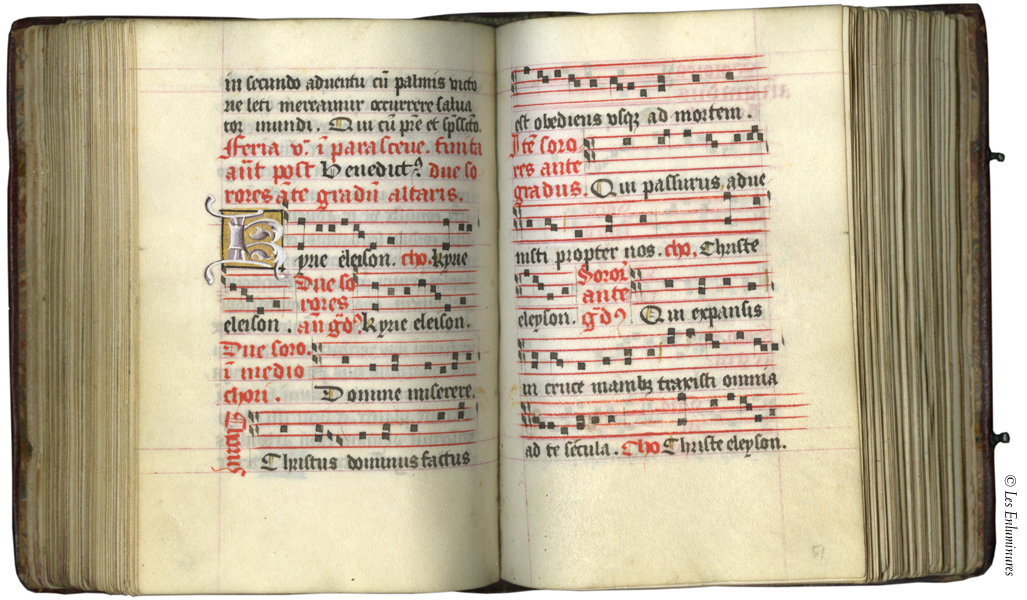 in secundo aduentu cū palmis victo
rie leti mereamur occurrere salua
tor mundi. Qui cū pr̄e et sp̄scto.
Feria vͣ. ī parasceue. finita
ān̄t post Benedictꝰ due so
rores āte gradū altaris.
Kyrie eleison. cho. kyrie
Due so
eleison. rores
an̄ gdꝰ kyrie eleison.
Due soro.
ī medio
chori. Domine miserere.
Chorus
Christus dominus factus
est obediens vsqꝫ ad mortem.
Itē soro
res ante
gradus. Qui passurus adue
nisti propter nos. cho. Christe
Soroꝛ
ante
eleyson. gdꝰ Qui expansis
in cruce manibꝫ traxisti omnia
ad te sēcula. Cho Christe eleyson.
51
© Les Enluminures